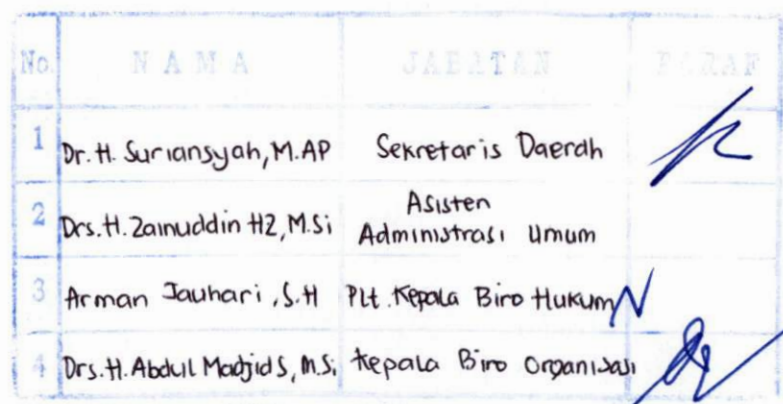 No. NAMA JABATAN PARAF
1 Dr. H. Suriansyah, M.AP Sekretaris Daerah
2 Drs. H. Zainuddin HZ, M.Si Asisten Administrasi Umum
3 Arman Jauhari, S.H Plt. Kepala Biro Hukum
4 Drs. H. Abdul Madjid S, M.Si Kepala Biro Organisasi